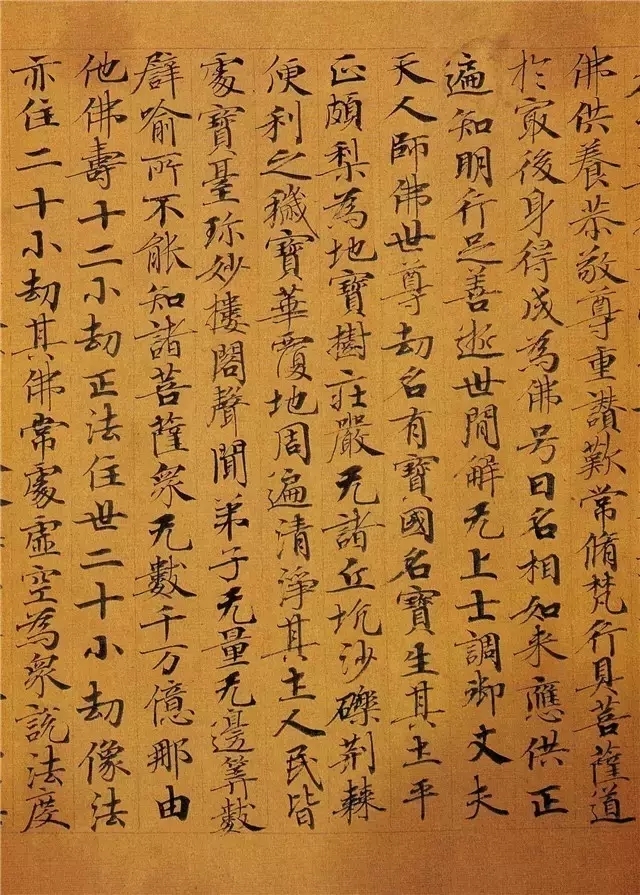 佛供養恭敬尊重讃歎常脩梵行具菩薩道
於冣後身得成為佛号曰名相如来應供正
遍知明行足善逝世間解无上士調御丈夫
天人師佛世尊劫名有寶國名寶生其土平
正頗梨為地寶樹莊嚴无諸丘坑沙礫荊棘
便利之穢寶華覆地周遍清淨其土人民皆
處寶臺珎妙樓閣聲聞弟子无量无邊筭數
譬喻所不能知諸菩薩衆无數千万億那由
他佛壽十二小劫正法住世二十小劫像法
亦住二十小劫其佛常處虛空為衆說法度